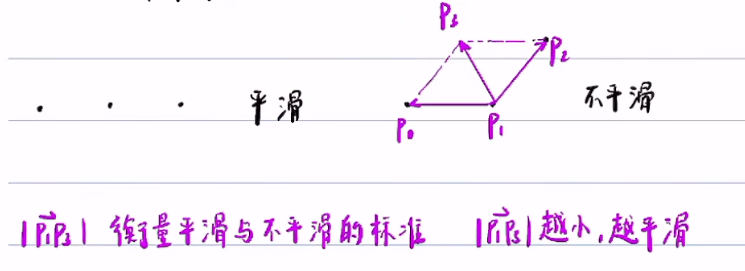 P₃
P₂
平滑
不平滑
P₀
P₁
|P₁P₃| 衡量平滑与不平滑的标准 |P₁P₃|越小,越平滑